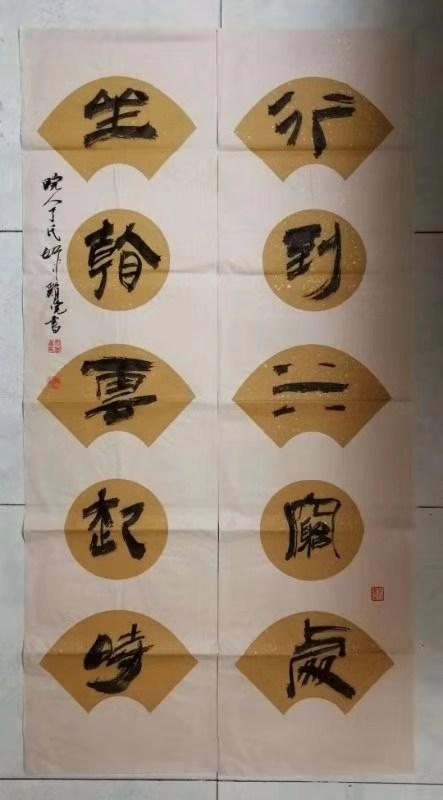 行到水窮處
坐看雲起時
皖人丁氏書